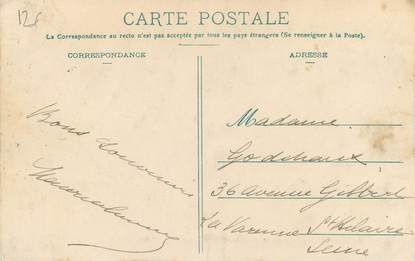 126
CARTE POSTALE
La Correspondance au recto n'est pas acceptée par tous les pays étrangers (Se renseigner à la Poste).
CORRESPONDANCE
ADRESSE
Bons souvenirs
Madame
Godchaux
36 avenue Gilbert
La Varenne St Hilaire
Seine